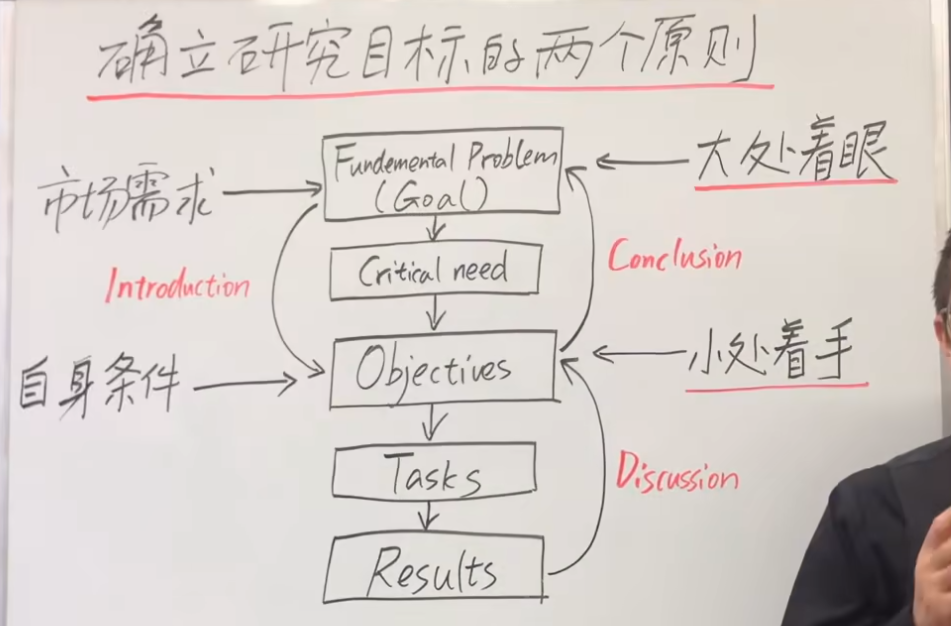 确立研究目标的两个原则
Fundemental Problem
(Goal)
市场需求
大处着眼
Critical need
Introduction
Conclusion
Objectives
自身条件
小处着手
Tasks
Discussion
Results